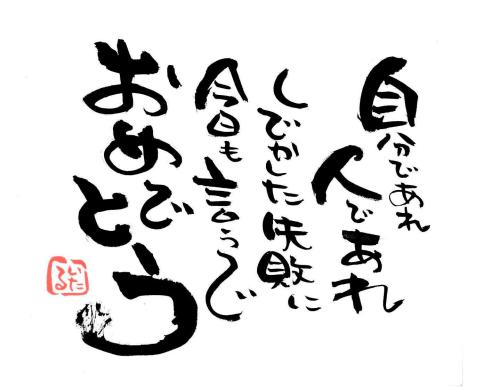 自分であれ
人であれ
しでかした失敗に
今日も言うぞ
おめでとう